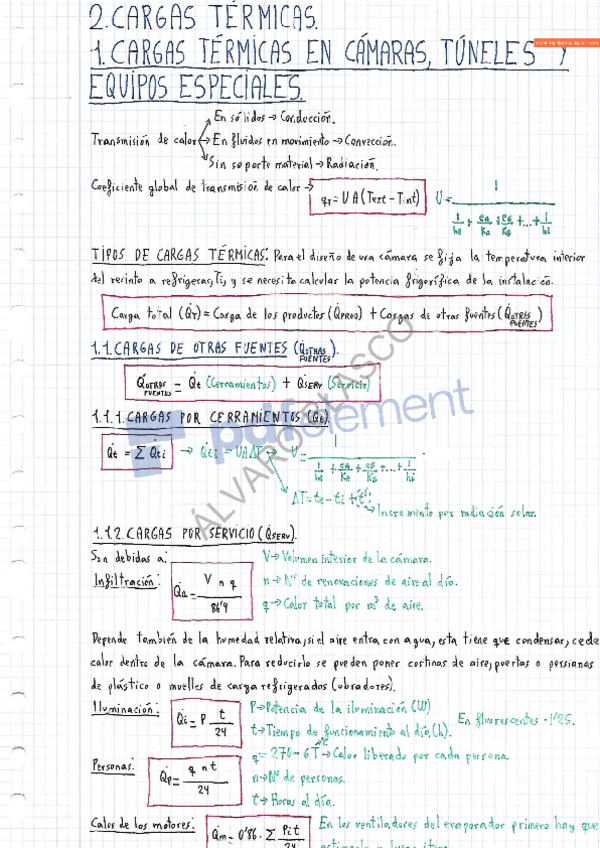 2. CARGAS TÉRMICAS.
1. CARGAS TÉRMICAS EN CÁMARAS, TÚNELES Y
EQUIPOS ESPECIALES.
En sólidos → Conducción.
Transmisión de calor → En fluidos en movimiento → Convección.
Sin soporte material → Radiación.
Coeficiente global de transmisión de calor → qT = U A (Text - Tint) U = 1 / (1/he + eA/KA + eB/KB + ... + 1/hi)
TIPOS DE CARGAS TÉRMICAS: Para el diseño de una cámara se fija la temperatura interior
del recinto a refrigerar, Ti, y se necesita calcular la potencia frigorífica de la instalación.
Carga total (Q̇T) = Carga de los productos (Q̇PROD) + Cargas de otras fuentes (Q̇OTRAS FUENTES)
1.1. CARGAS DE OTRAS FUENTES (Q̇OTRAS FUENTES).
Q̇OTRAS FUENTES = Q̇t (Cerramientos) + Q̇SERV (Servicio)
1.1.1. CARGAS POR CERRAMIENTOS (Q̇t).
Q̇t = Σ Q̇ti → Q̇ti = UAΔT → U = 1 / (1/hi + eA/KA + eB/KB + ... + 1/hi)
ΔT = te - ti + t's
Incremento por radiación solar.
1.1.2. CARGAS POR SERVICIO (Q̇SERV).
Son debidas a: V → Volumen interior de la cámara.
Infiltración: Q̇a = V n q / 86'4 n → Nº de renovaciones de aire al día.
q → Calor total por m³ de aire.
Depende también de la humedad relativa, si el aire entra con agua, esta tiene que condensar, cede
calor dentro de la cámara. Para reducirlo se pueden poner cortinas de aire, puertas o persianas
de plástico o muelles de carga refrigerados (obradores).
Iluminación: Q̇i = P t / 24 P → Potencia de la iluminación (W)
t → Tiempo de funcionamiento al día (h). En fluorescentes · 1'25.
Personas: Q̇p = q n t / 24 q = 270 - 6T → Calor liberado por cada persona.
n → Nº de personas.
t → Horas al día.
Calor de los motores: Q̇m = 0'86 · Σ Pi t / 24 En los ventiladores del evaporador primero hay que
ÁLVARO BLASCO
pdfelement